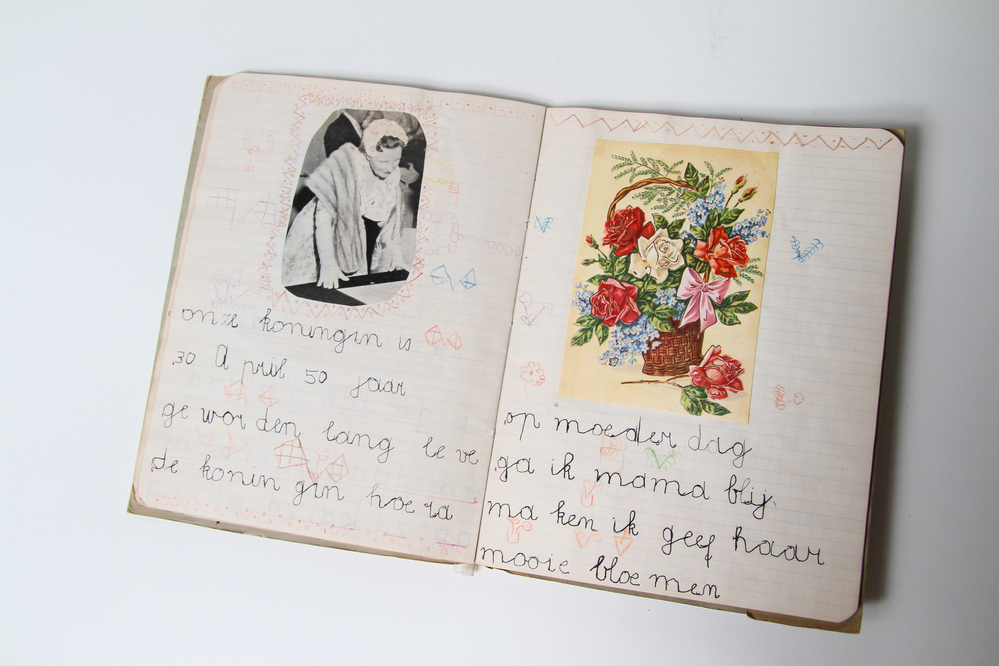 onze koningin is
30 April 50 jaar
ge wor den lang le ve
de konin gin hoe ra
op moeder dag
ga ik mama blij
ma ken ik geef haar
mooie bloe men